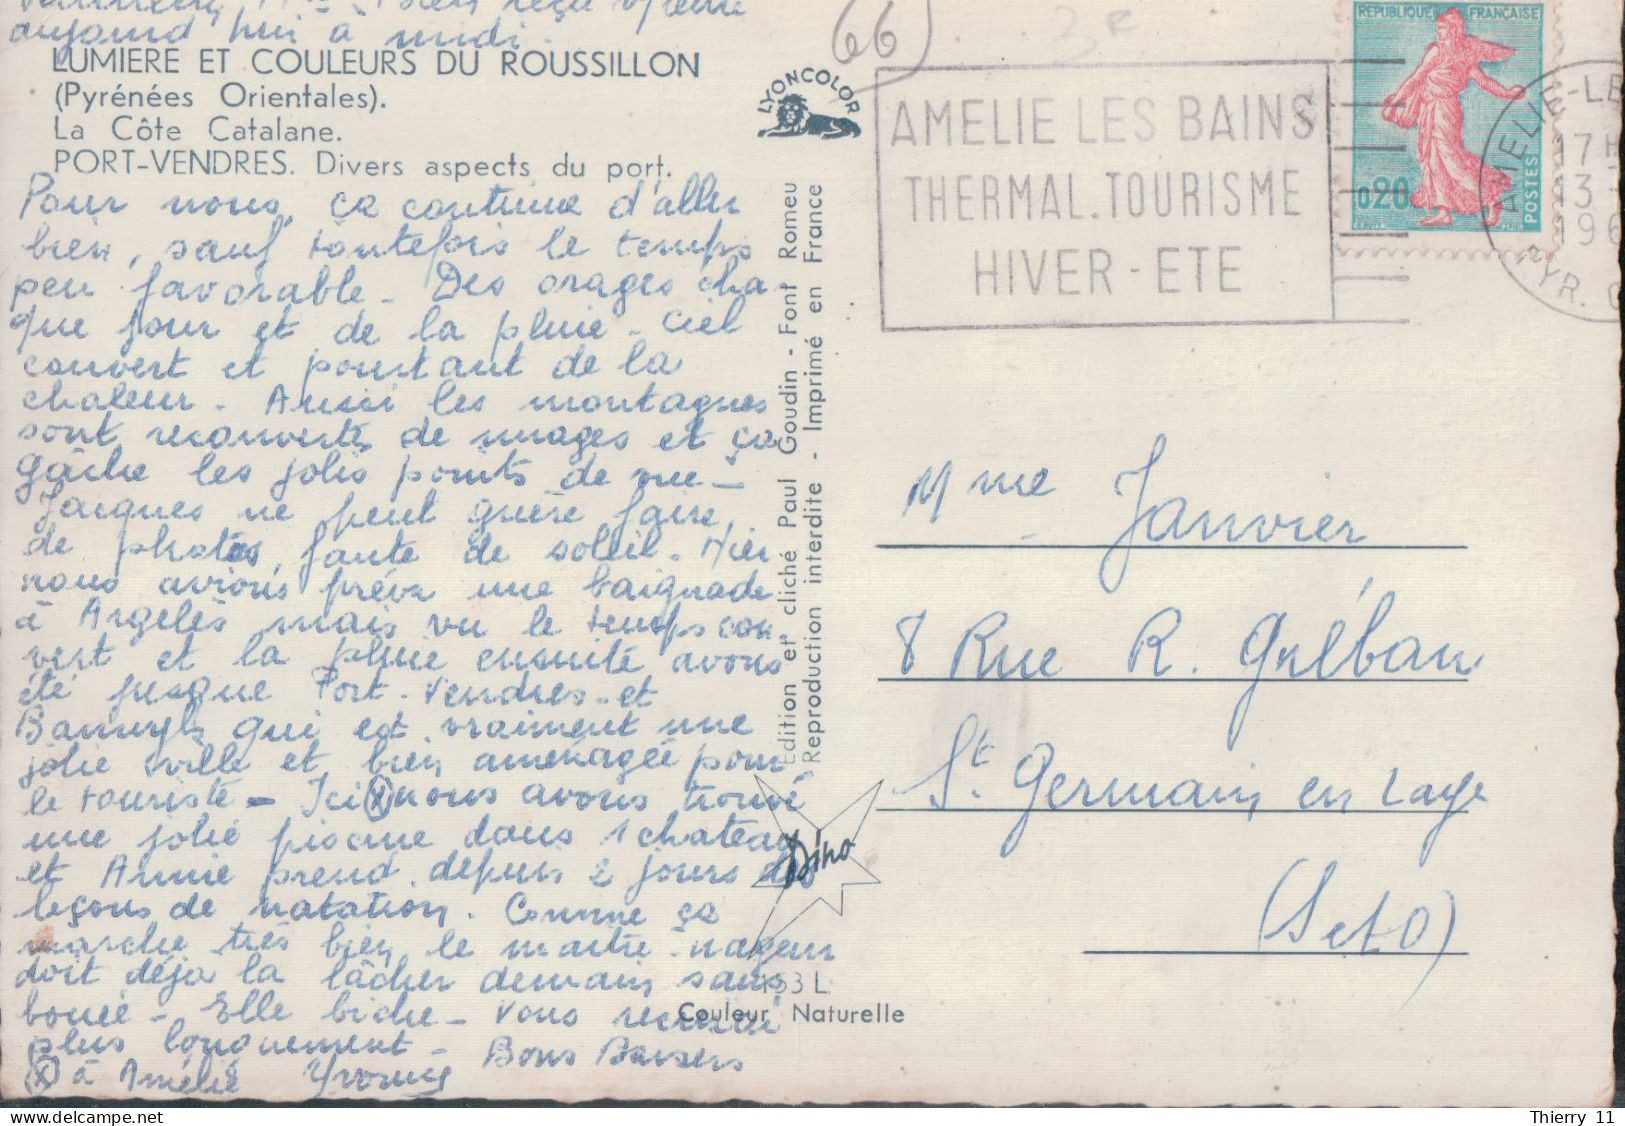 aujourd'hui à midi.
LUMIERE ET COULEURS DU ROUSSILLON
(Pyrénées Orientales).
La Côte Catalane.
PORT-VENDRES. Divers aspects du port.
Pour nous, ça continue d'aller
bien, sauf toutefois le temps
peu favorable - Des orages cha-
que jour et de la pluie - Ciel
couvert et pourtant de la
chaleur - Aussi les montagnes
sont recouvertes de nuages et ça
gâche les jolis points de vue -
Jacques ne peut guère faire
de photos, faute de soleil - Hier
nous avions prévu une baignade
à Argelès mais vu le temps cou
vert et la pluie ensuite avons
été jusque Port-Vendres - et
Banyuls qui est vraiment une
jolie ville et bien aménagée pour
le touriste - Ici (x) nous avons trouvé
une jolie piscine dans 1 chateau
et Annie prend depuis 2 jours des
leçons de natation. Comme ça
marche très bien le maître-nageur
doit déjà la lâcher demain sans
bouée - Elle biche - Vous
plus longuement - Bons Baisers
(x) à Amélie Yvonne
66
LYONCOLOR
Edition et cliché Paul Goudin - Font Romeu
Reproduction interdite - Imprimé en France
Dino
153 L
Couleur Naturelle
AMELIE LES BAINS
THERMAL.TOURISME
HIVER-ETE
REPUBLIQUE FRANÇAISE
0,20
POSTES
AMELIE-LE
17H
13
196
PYR. O
Mme Janvier
8 Rue R. Gréban
St Germain en Laye
(S et O)
Thierry 11